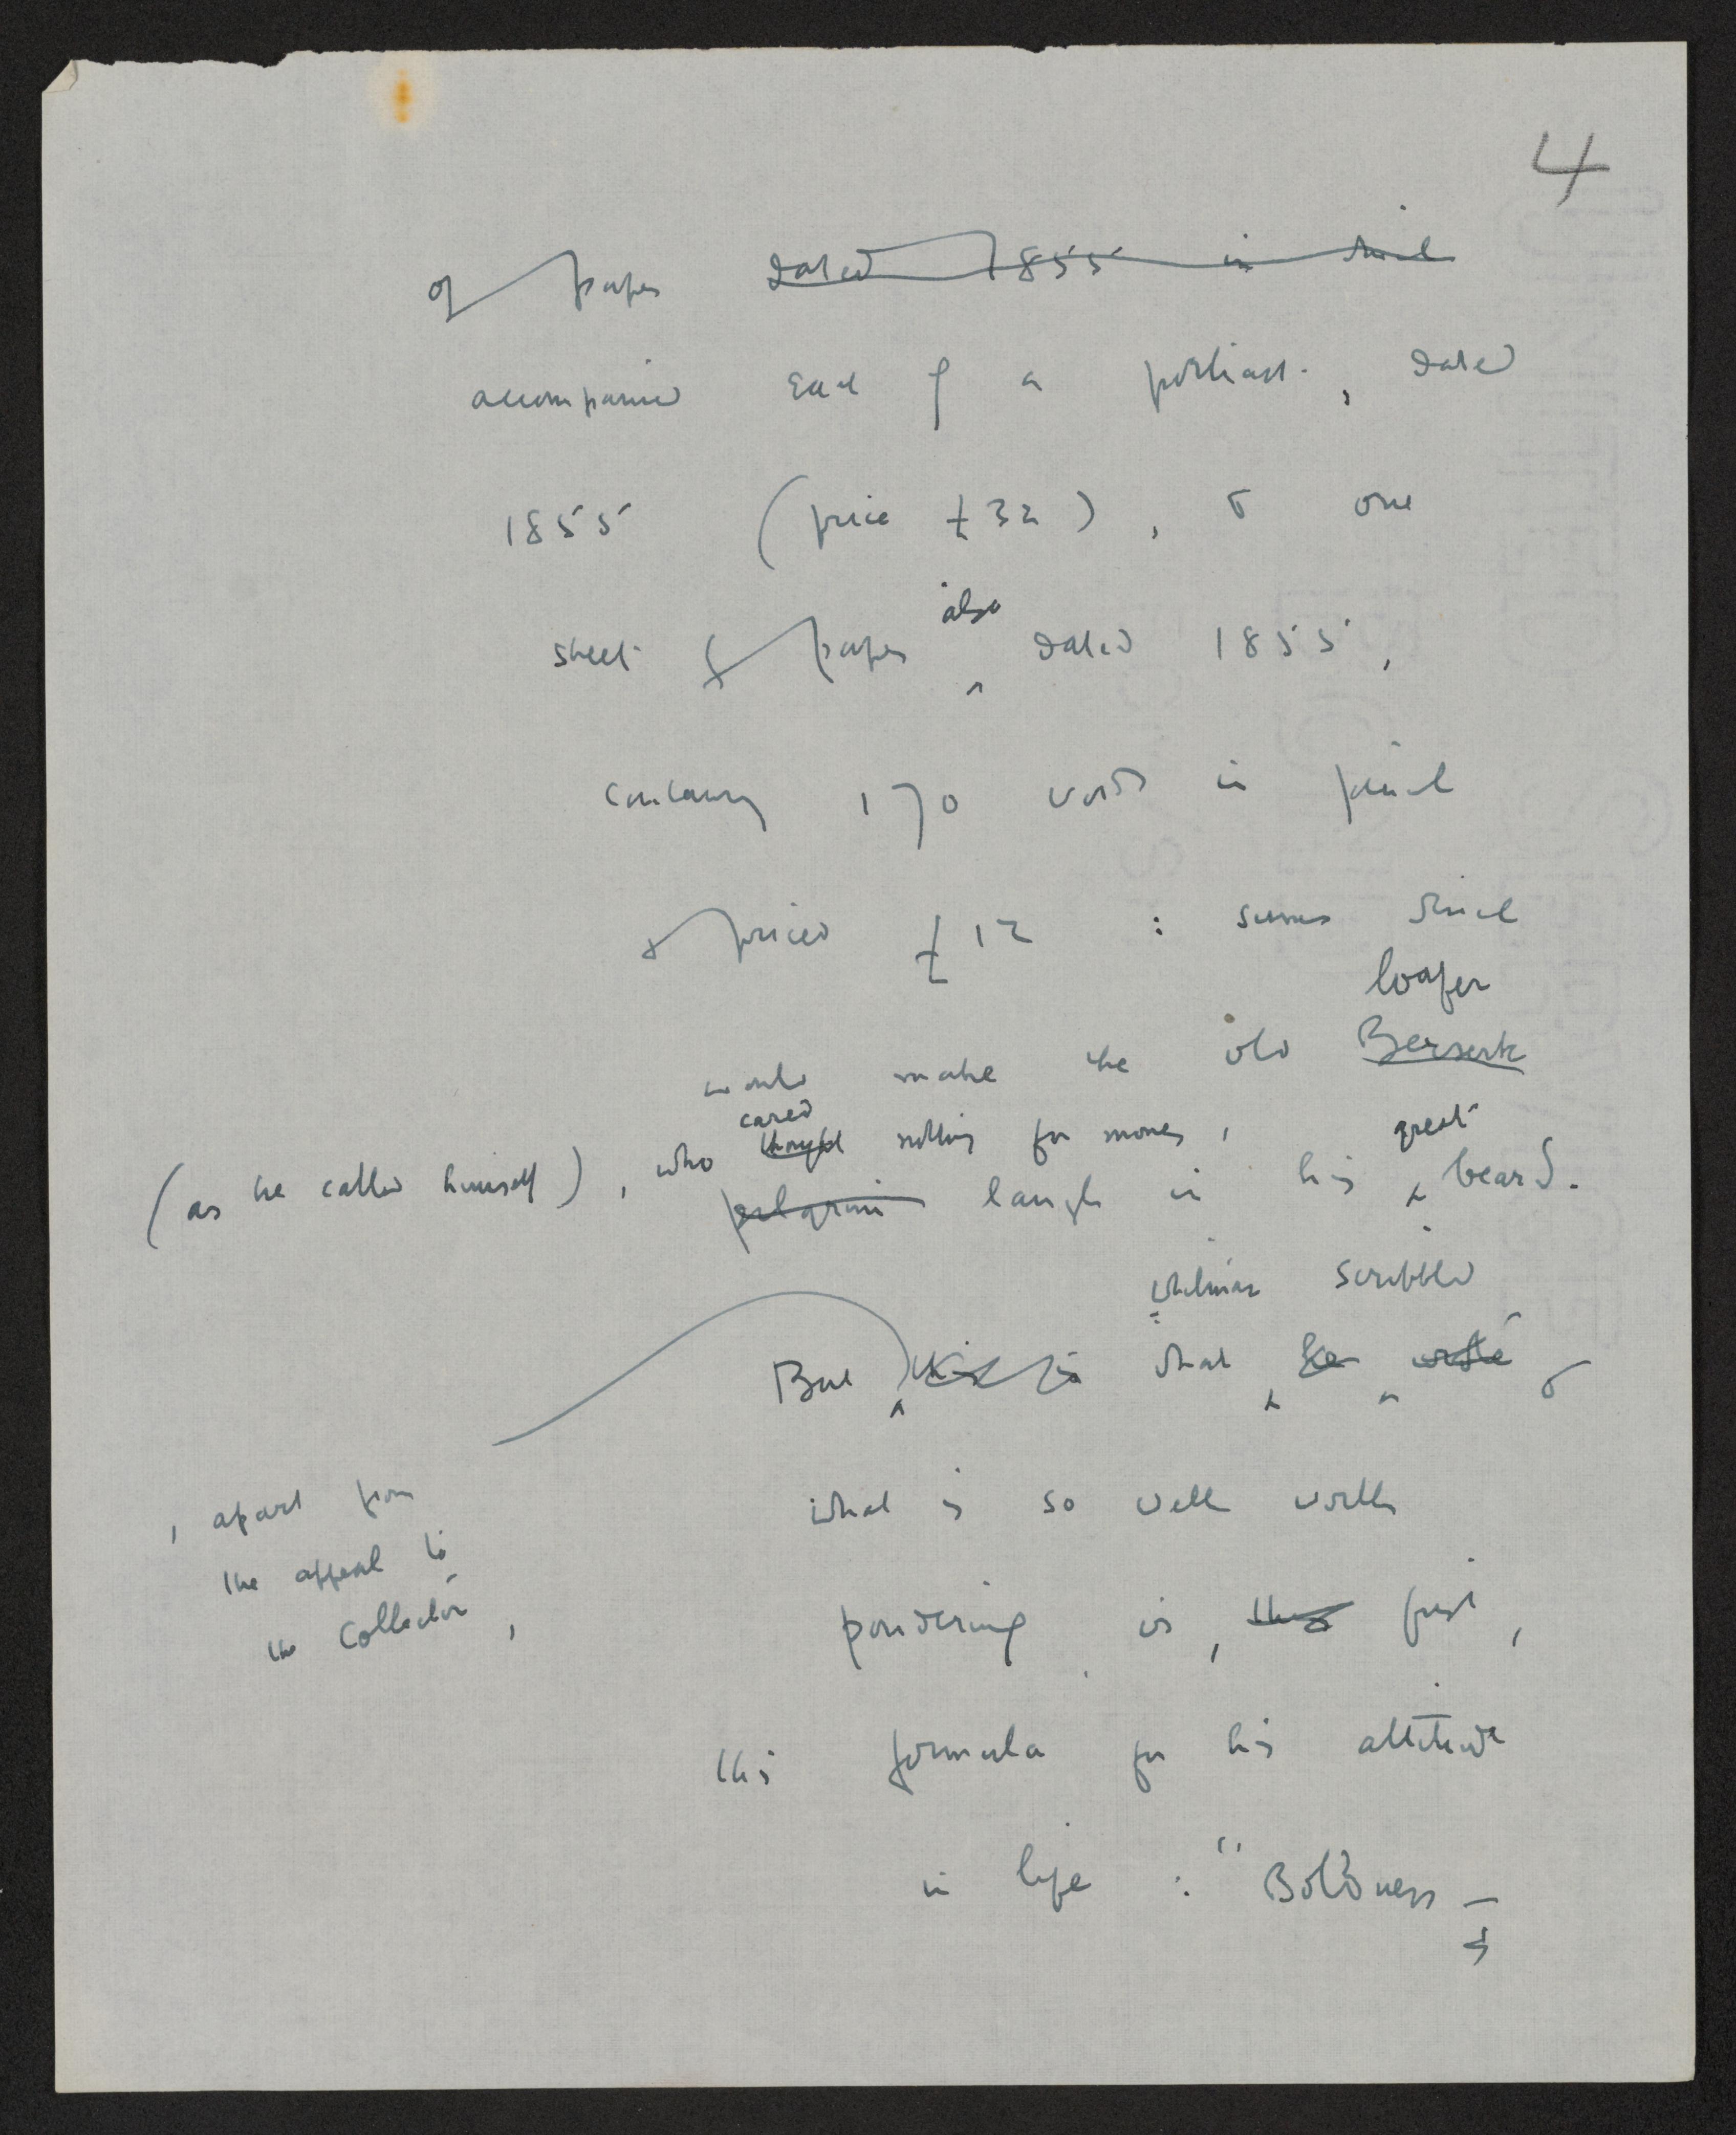 4
of paper dated 1855 in which
accompanied each of a , dated
1855 (price £32), & one
sheet of paper also dated 1855,
containing 170 words in pencil
& priced £12 : sums which
loafer
would make the old Berserk
cared great
(as he called himself), who thought nothing for money,
pilgrim laugh in his beard.
Whitman scribbled
But this is what he wrote &
, apart from
the appeal to
the Collector,
what is so well worth
pondering is, first,
this formula for his attitude
in life : "Boldness —